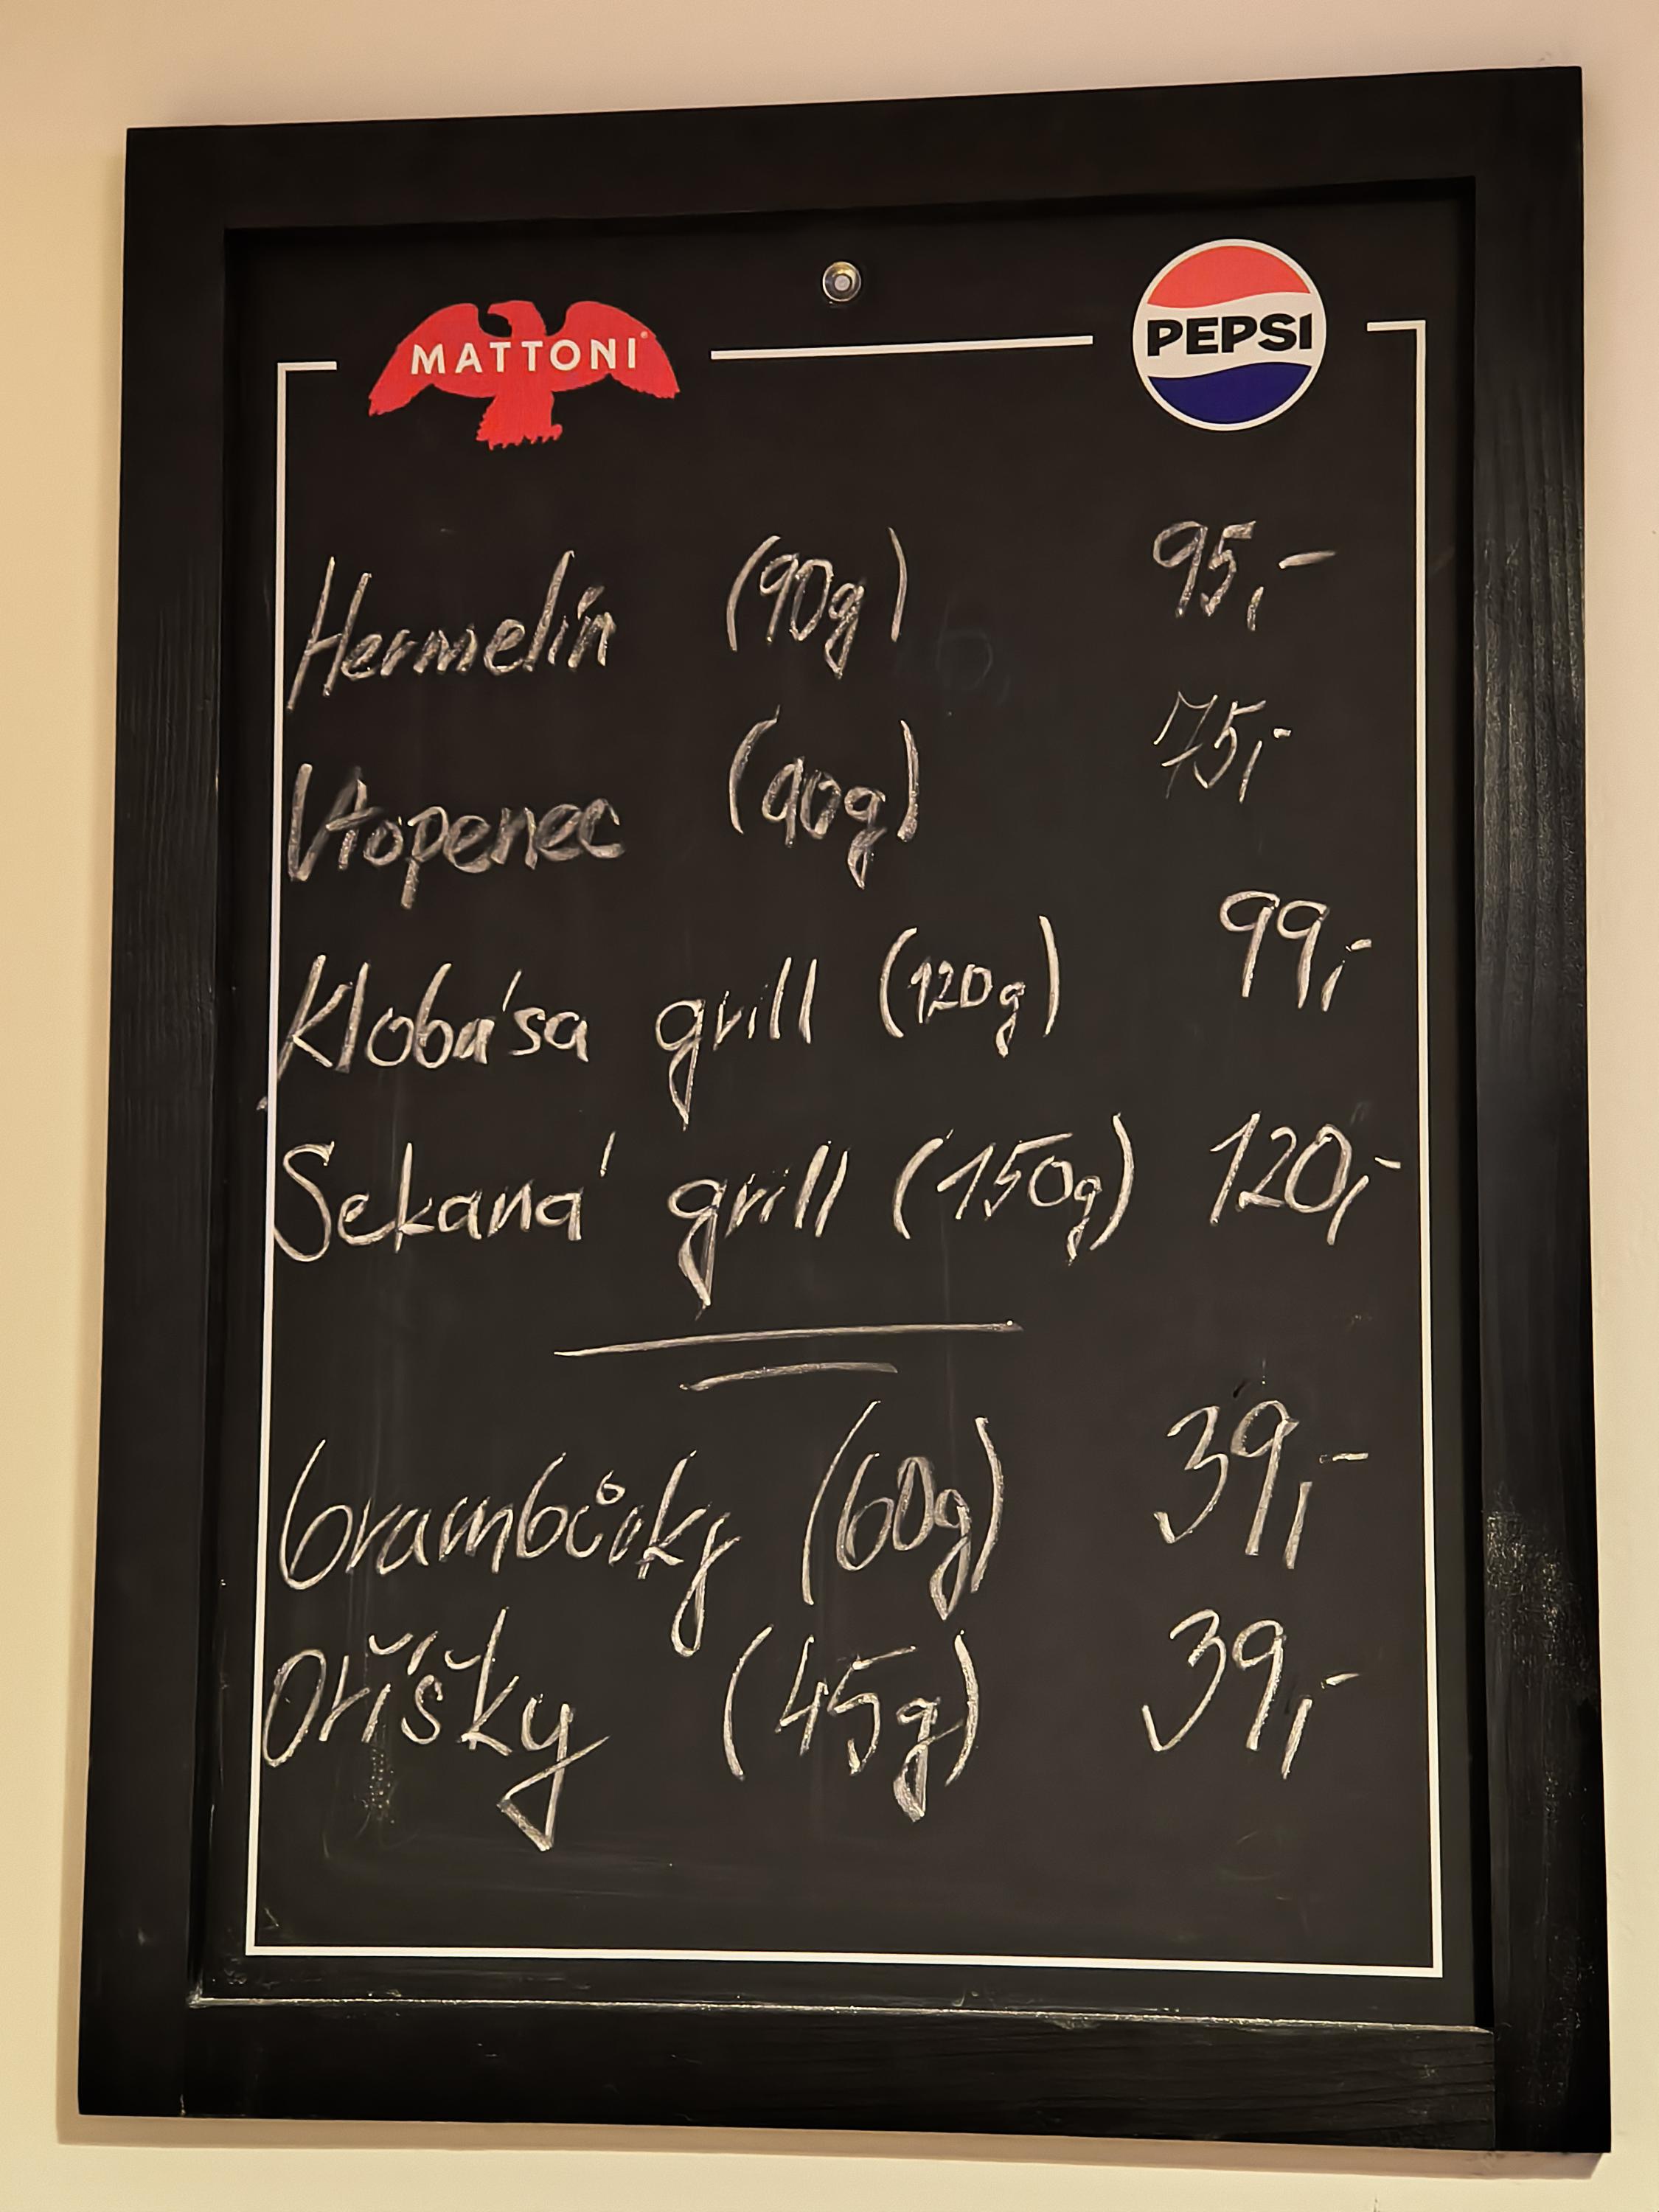 MATTONI® PEPSI
Hermelín (90g) 95,-
Utopenec (90g) 75,-
Klobása grill (120g) 99,-
Sekaná grill (150g) 120,-
Brambůrky (60g) 39,-
Oříšky (45g) 39,-